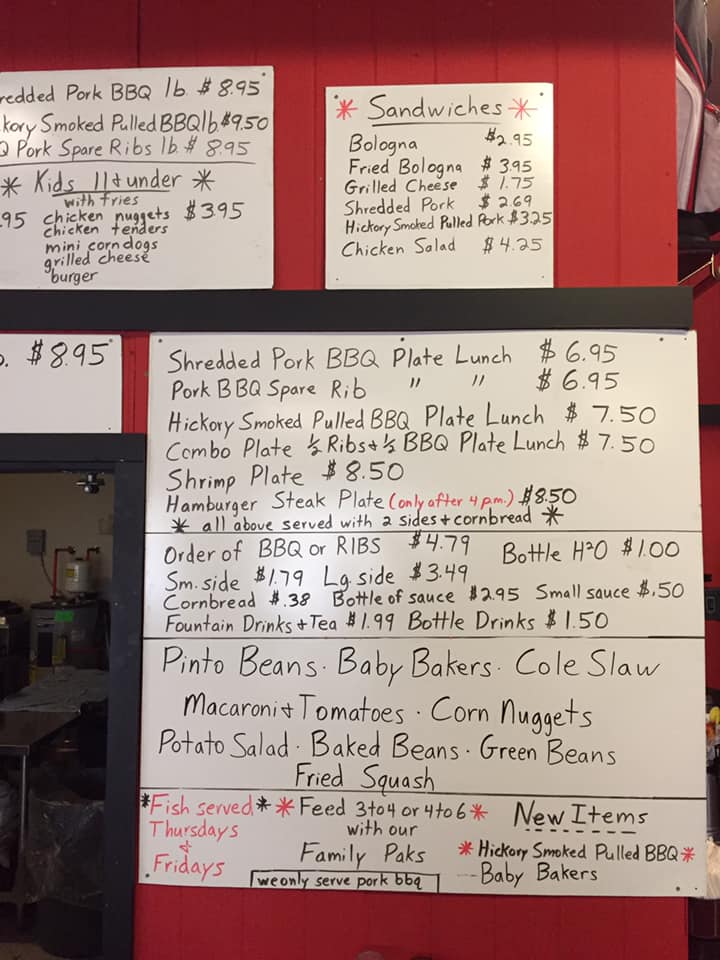 redded Pork BBQ lb. $8.95
kory Smoked Pulled BBQ lb. $9.50
Q Pork Spare Ribs lb. $8.95
* Kids 11 & under *
with fries
95 chicken nuggets $3.95
chicken tenders
mini corndogs
grilled cheese
burger
* Sandwiches *
Bologna $2.95
Fried Bologna $3.95
Grilled Cheese $1.75
Shredded Pork $2.69
Hickory Smoked Pulled Pork $3.25
Chicken Salad $4.25
. $8.95
Shredded Pork BBQ Plate Lunch $6.95
Pork BBQ Spare Rib " " $6.95
Hickory Smoked Pulled BBQ Plate Lunch $7.50
Combo Plate ½ Ribs & ½ BBQ Plate Lunch $7.50
Shrimp Plate $8.50
Hamburger Steak Plate (only after 4 p.m.) $8.50
* all above served with 2 sides & cornbread *
Order of BBQ or RIBS $4.79 Bottle H²O $1.00
Sm. side $1.79 Lg. side $3.49
Cornbread $.38 Bottle of sauce $2.95 Small sauce $.50
Fountain Drinks & Tea $1.99 Bottle Drinks $1.50
Pinto Beans · Baby Bakers · Cole Slaw
Macaroni & Tomatoes · Corn Nuggets
Potato Salad · Baked Beans · Green Beans
Fried Squash
*Fish served*
Thursdays
&
Fridays
* Feed 3 to 4 or 4 to 6 *
with our
Family Paks
we only serve pork bbq
New Items
* Hickory Smoked Pulled BBQ *
--- Baby Bakers